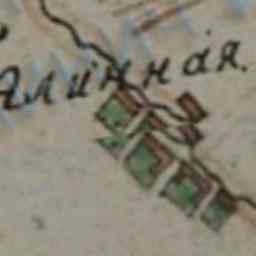 Длинна́я.